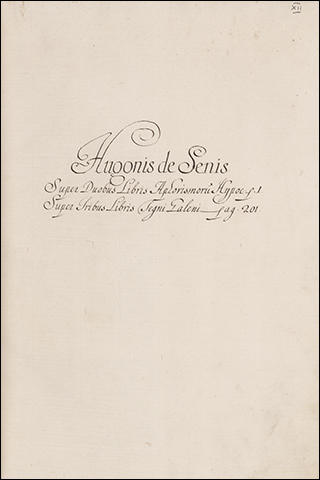 XII
Hugonis de Senis
Super Duobus Libris Aphorismorū Hypoc. p. 1
Super Tribus Libris Tegni Galeni pag 201